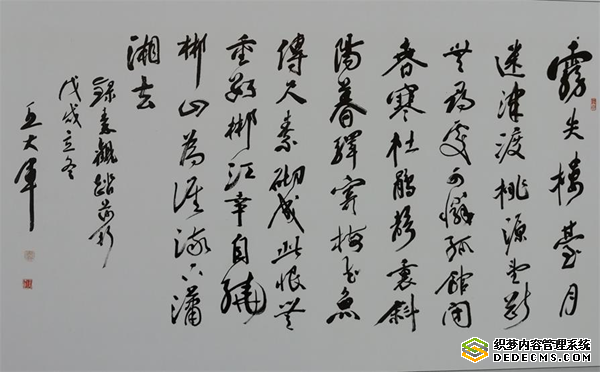 霧失樓臺月
迷津渡桃源望斷
無尋處可憐孤館閉
春寒杜鵑聲裏斜
陽暮驛寄梅花魚
傳尺素砌成此恨無
重數郴江幸自繞
郴山為誰流下瀟
湘去
錄秦觀踏莎行
戊戌立冬
王大軍
织梦内容管理系统
DEDECMS.com